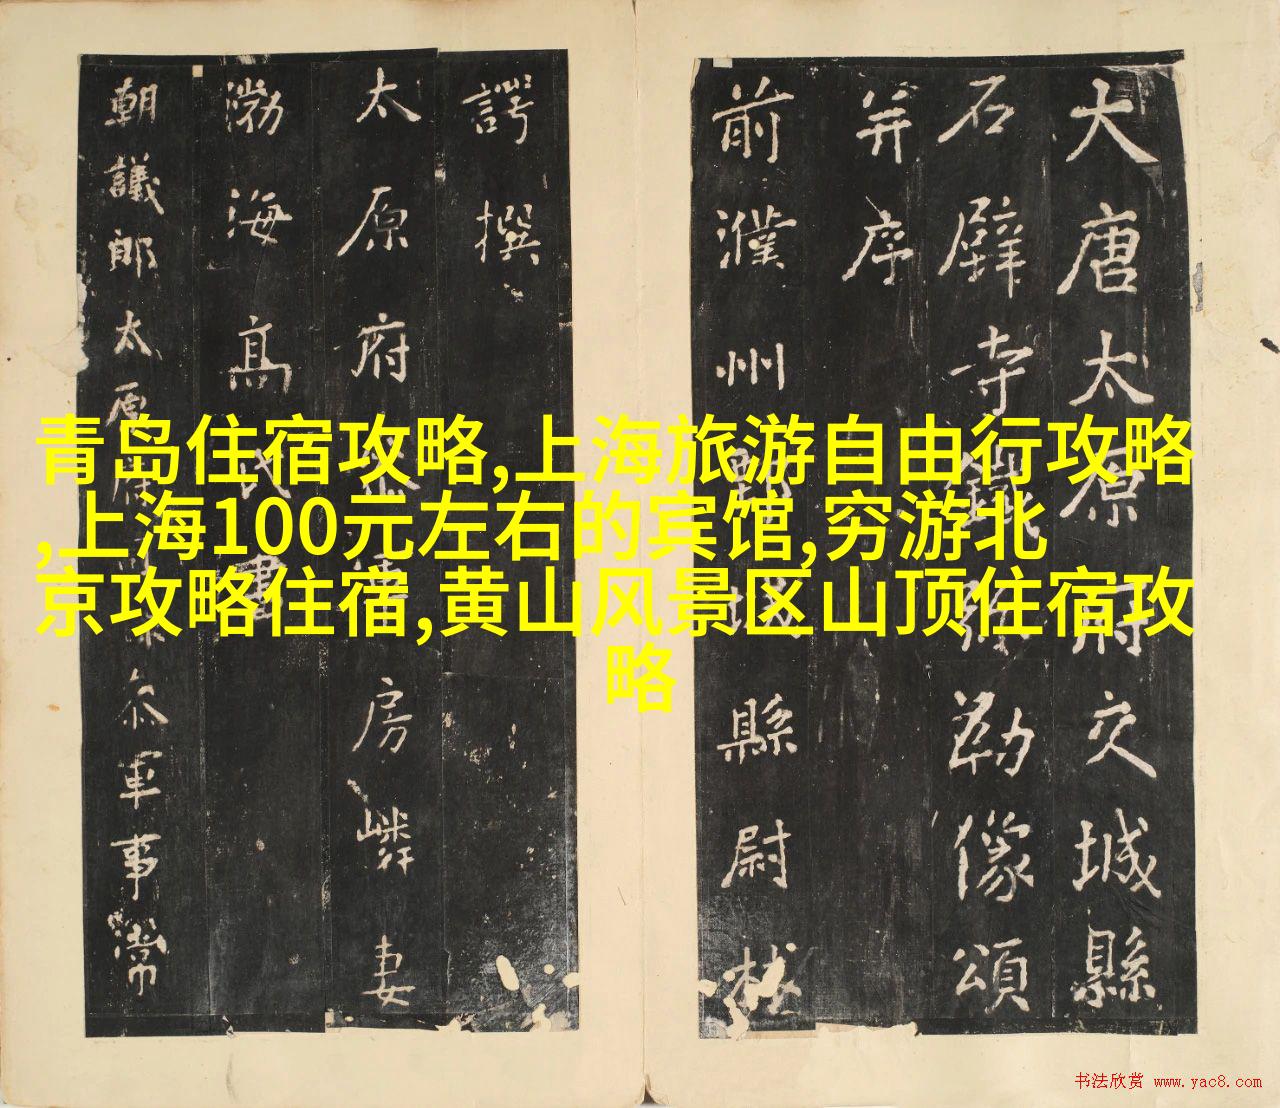 大唐太原府交城縣
石壁寺鐵彌勒像頌
并序
前濮州鄄城縣尉林
諤撰
太原府
房嶙妻
渤海高氏書
朝議郎太原府
叅軍事常
青岛住宿攻略,上海旅游自由行攻略
,上海100元左右的宾馆,穷游北
京攻略住宿,黄山风景区山顶住宿攻
略
书法欣赏 www.yac8.com